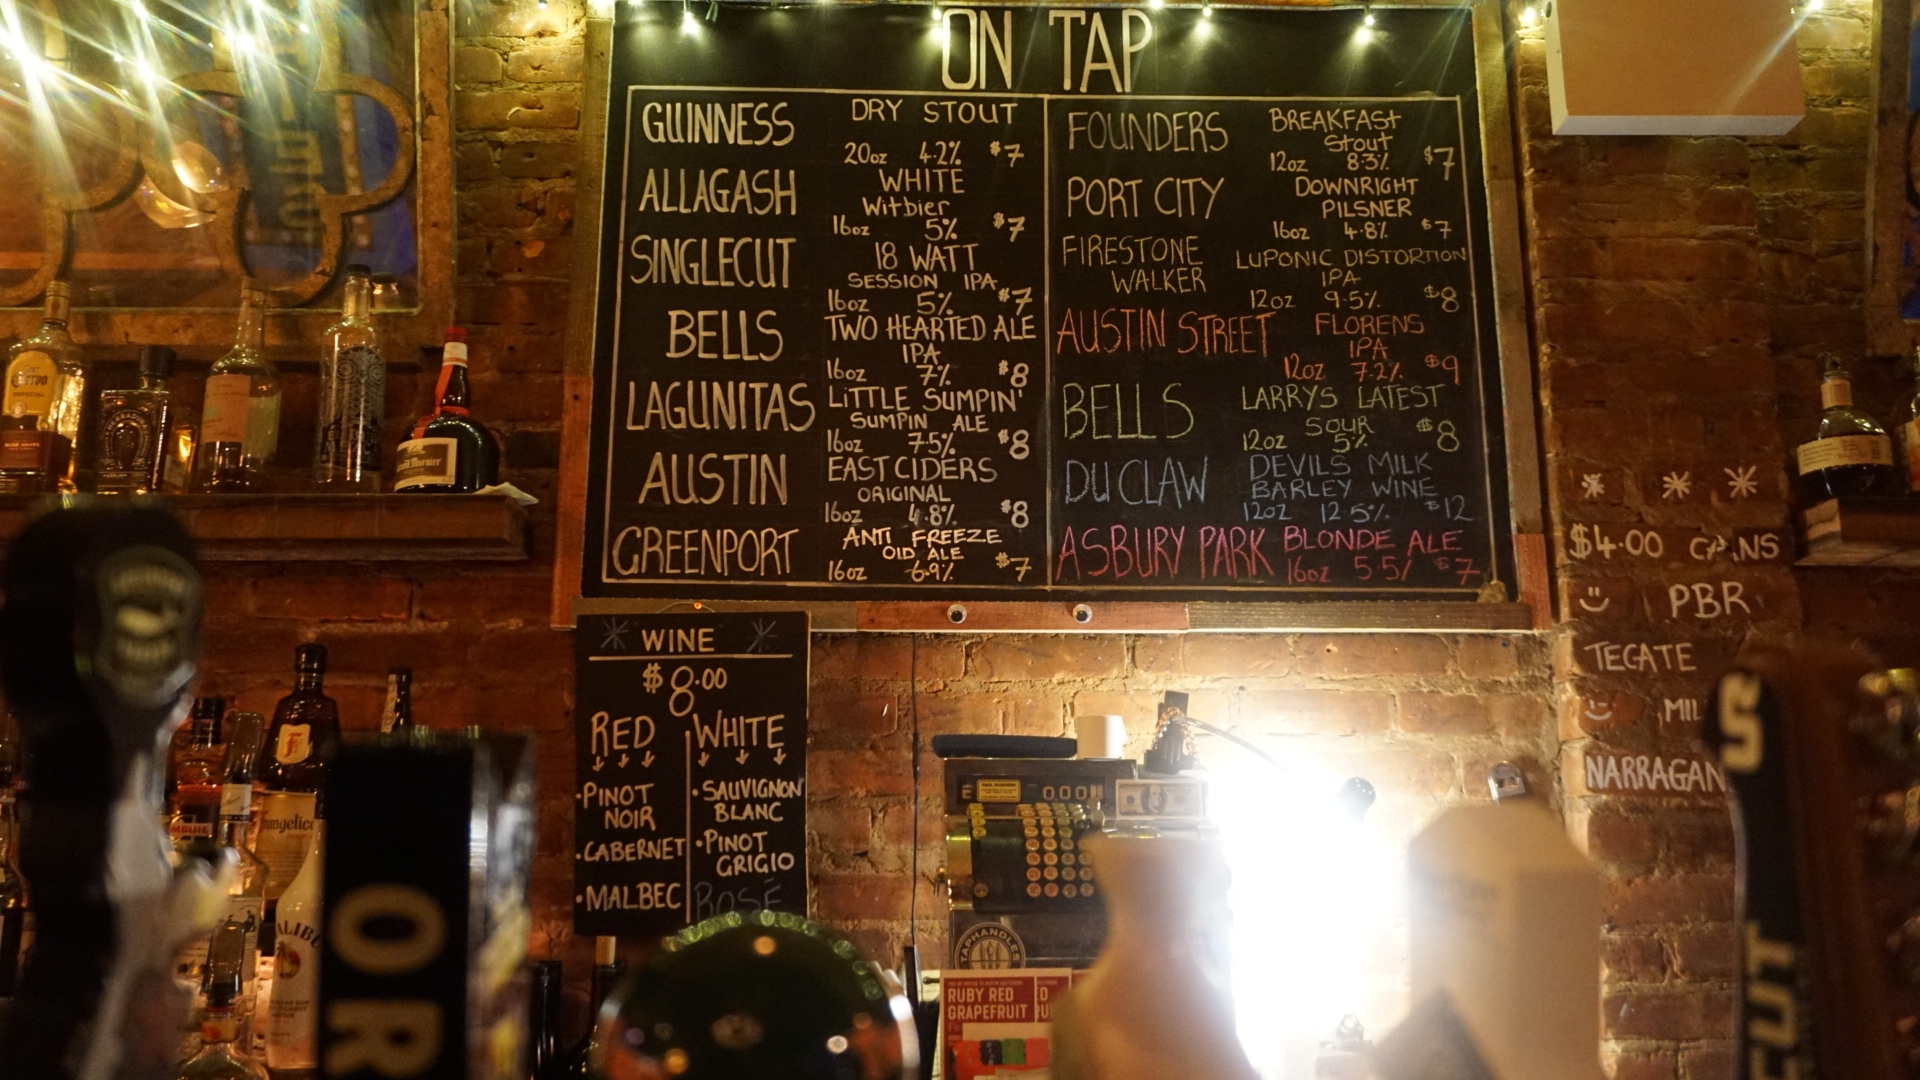 ON TAP
GUINNESS DRY STOUT
20oz 4.2% $7
ALLAGASH WHITE
Witbier
16oz 5% $7
SINGLECUT 18 WATT
SESSION IPA
16oz 5% $7
BELLS TWO HEARTED ALE
IPA
16oz 7% $8
LAGUNITAS LiTTLE SUMPIN'
SUMPIN ALE
16oz 7.5% $8
AUSTIN EASTCIDERS
ORIGINAL
16oz 4.8% $8
GREENPORT ANTI FREEZE
OLD ALE
16oz 6.9% $7
FOUNDERS BREAKFAST
Stout
12oz 8.3% $7
PORT CITY DOWNRIGHT
PILSNER
16oz 4.8% $7
FIRESTONE WALKER LUPONIC DISTORTION
IPA
12oz 9.5% $8
AUSTIN STREET FLORENS
IPA
12oz 7.2% $9
BELLS LARRYS LATEST
SOUR
12oz 5% $8
DUCLAW DEVILS MILK
BARLEY WINE
12oz 12.5% $12
ASBURY PARK BLONDE ALE
16oz 5.5% $7
WINE
$8.00
RED
PINOT
NOIR
CABERNET
MALBEC
WHITE
SAUVIGNON
BLANC
PINOT
GRIGIO
ROSÉ
$4.00 CANS
PBR
TECATE
MIL
NARRAGAN
TAPHANDLES
RUBY RED
GRAPEFRUIT
OR
S
CUT